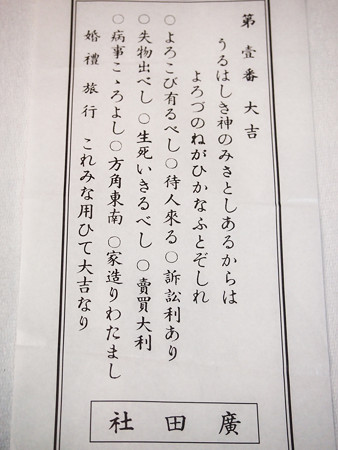 第壹番 大吉
うるはしき神のみさとしあるからは
よろづのねがひかなふとぞしれ
○よろこび有るべし○待人來る○訴訟利あり
○失物出べし○生死いきるべし○賣買大利
○病事こゝろよし○方角東南○家造りわたまし
婚禮 旅行 これみな用ひて大吉なり
廣田社